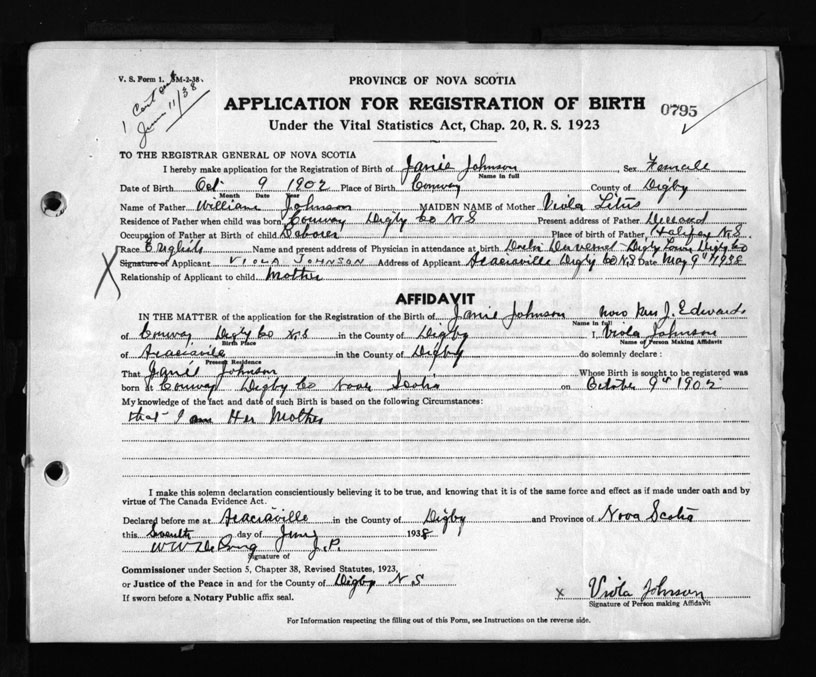 V. S. Form 1. 5M-2-38.
1 Cert sent
June 11/38
PROVINCE OF NOVA SCOTIA
APPLICATION FOR REGISTRATION OF BIRTH
0795
Under the Vital Statistics Act, Chap. 20, R. S. 1923
TO THE REGISTRAR GENERAL OF NOVA SCOTIA
I hereby make application for the Registration of Birth of Janie Johnson Sex Female
Name in full
Date of Birth Oct 9 1902 Place of Birth Conway County of Digby
Month Date Year
Name of Father William Johnson MAIDEN NAME of Mother Viola
Residence of Father when child was born Conway Digby Co N.S Present address of Father Deceased
Occupation of Father at Birth of child Laborer Place of birth of Father Halifax N.S.
Race English Name and present address of Physician in attendance at birth Digby Town Digby Co
Signature of Applicant VIOLA JOHNSON Address of Applicant Acaciaville Digby Co N.S Date May 9th 1938
Relationship of Applicant to child Mother
AFFIDAVIT
IN THE MATTER of the application for the Registration of the Birth of Janie Johnson now Mrs J. Edwards
Name in full
of Conway Digby Co N.S in the County of Digby I, Viola Johnson
Birth Place Name of Person Making Affidavit
of Acaciaville in the County of Digby do solemnly declare :
Present Residence
That Janie Johnson Whose Birth is sought to be registered was
born at Conway Digby Co Nova Scotia on October 9th 1902
My knowledge of the fact and date of such Birth is based on the following Circumstances:
that I am Her Mother
I make this solemn declaration conscientiously believing it to be true, and knowing that it is of the same force and effect as if made under oath and by
virtue of The Canada Evidence Act.
Declared before me at Acaciaville in the County of Digby and Province of Nova Scotia
this Seventh day of June 1938
J.P.
Signature of
Commissioner under Section 5, Chapter 38, Revised Statutes, 1923,
or Justice of the Peace in and for the County of Digby N S
If sworn before a Notary Public affix seal.
x Viola Johnson
Signature of Person making Affidavit
For Information respecting the filling out of this Form, see Instructions on the reverse side.